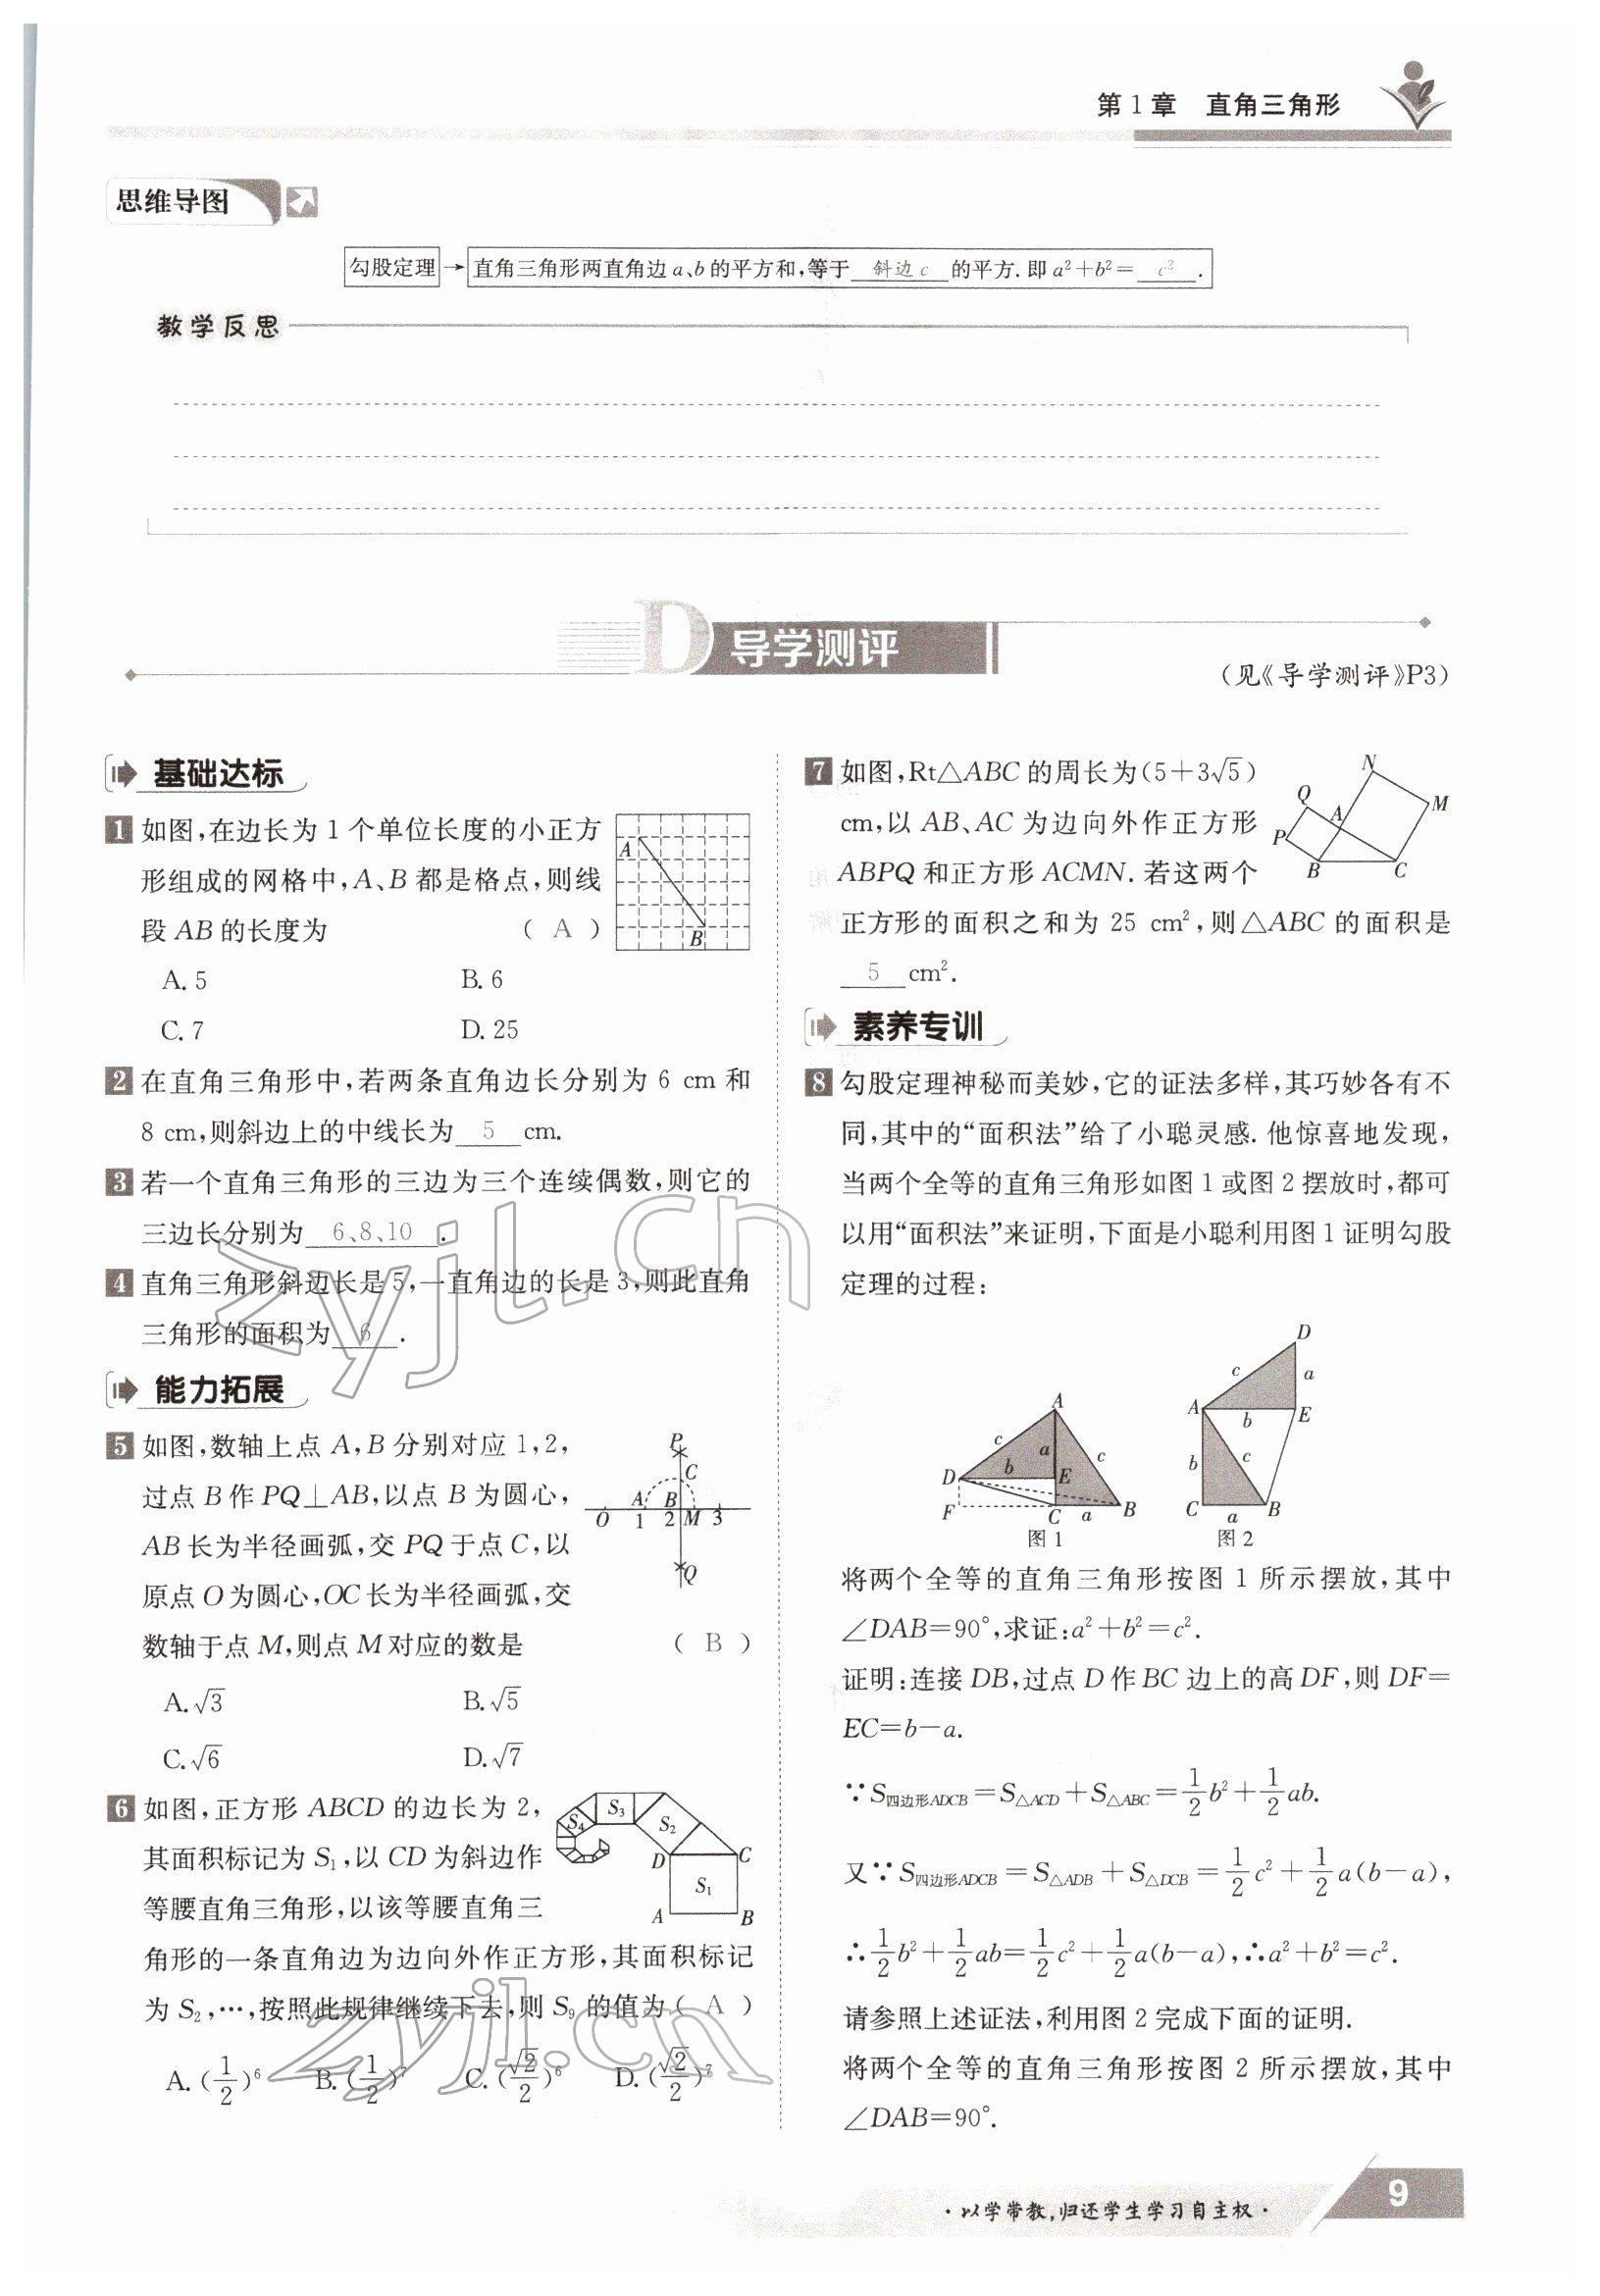 第1章 直角三角形
思维导图
勾股定理→直角三角形两直角边a、b的平方和,等于 斜边c 的平方.即a²+b²= c² .
教学反思
D 导学测评
(见《导学测评》P3)
基础达标
1 如图,在边长为1个单位长度的小正方
形组成的网格中,A、B都是格点,则线
段AB的长度为 ( A )
A
B
A. 5 B. 6
C. 7 D. 25
2 在直角三角形中,若两条直角边长分别为6 cm和
8 cm,则斜边上的中线长为 5 cm.
3 若一个直角三角形的三边为三个连续偶数,则它的
三边长分别为 6、8、10 .
4 直角三角形斜边长是5,一直角边的长是3,则此直角
三角形的面积为 6 .
能力拓展
5 如图,数轴上点A,B分别对应1,2,
过点B作PQ⊥AB,以点B为圆心,
AB长为半径画弧,交PQ于点C,以
原点O为圆心,OC长为半径画弧,交
数轴于点M,则点M对应的数是 ( B )
P
C
A B
O 1 2 M 3
Q
A.√3 B.√5
C.√6 D.√7
6 如图,正方形ABCD的边长为2,
其面积标记为S₁,以CD为斜边作
等腰直角三角形,以该等腰直角三
角形的一条直角边为边向外作正方形,其面积标记
为S₂,…,按照此规律继续下去,则S₉的值为( A )
S₄ S₃ S₂
D C
S₁
A B
A.(1/2)⁶ B.(1/2)⁷ C.(√2/2)⁶ D.(√2/2)⁷
7 如图,Rt△ABC的周长为(5+3√5)
cm,以AB、AC为边向外作正方形
ABPQ和正方形ACMN.若这两个
正方形的面积之和为25 cm²,则△ABC的面积是
5 cm².
N
Q M
A
P
B C
素养专训
8 勾股定理神秘而美妙,它的证法多样,其巧妙各有不
同,其中的“面积法”给了小聪灵感.他惊喜地发现,
当两个全等的直角三角形如图1或图2摆放时,都可
以用“面积法”来证明,下面是小聪利用图1证明勾股
定理的过程:
A
c a c
D b E
F C a B
图1
D
c a
A b E
b c
C a B
图2
将两个全等的直角三角形按图1所示摆放,其中
∠DAB=90°,求证:a²+b²=c².
证明:连接DB,过点D作BC边上的高DF,则DF=
EC=b−a.
∵S四边形ADCB=S△ACD+S△ABC=1/2b²+1/2ab.
又∵S四边形ADCB=S△ADB+S△DCB=1/2c²+1/2a(b−a),
∴1/2b²+1/2ab=1/2c²+1/2a(b−a),∴a²+b²=c².
请参照上述证法,利用图2完成下面的证明.
将两个全等的直角三角形按图2所示摆放,其中
∠DAB=90°.
zyjl.cn
zyjl.cn
·以学带教,归还学生学习自主权·
9